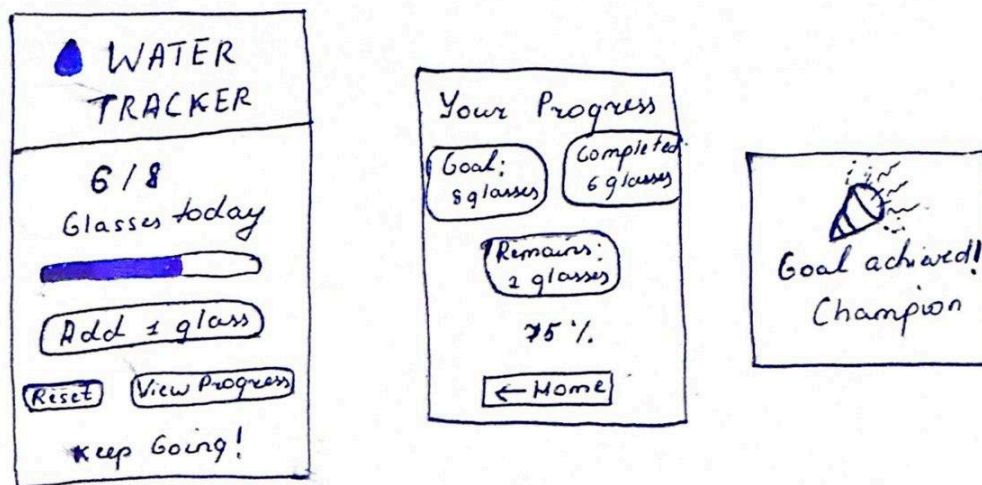 WATER
TRACKER
6/8
Glasses today
Add 1 glass
Reset
View Progress
Keep Going!
Your Progress
Goal:
8 glasses
Completed:
6 glasses
Remains:
2 glasses
75%
← Home
Goal achieved!
Champion